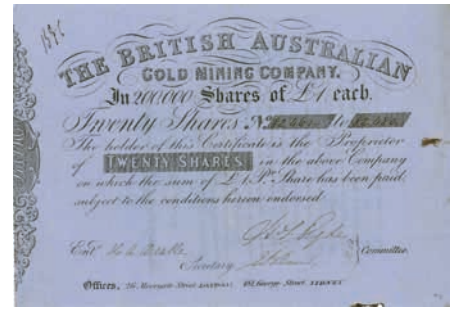 THE BRITISH AUSTRALIAN
GOLD MINING COMPANY.
In 200,000 Shares of £1 each.
Twenty Shares No to
The holder of this Certificate is the Proprietor
of TWENTY SHARES in the above Company
on which the sum of £1 Pr. Share has been paid
subject to the conditions hereon endorsed
Entd.
Secretary
Committee.
Offices, 26, Street 481, George Street SYDNEY